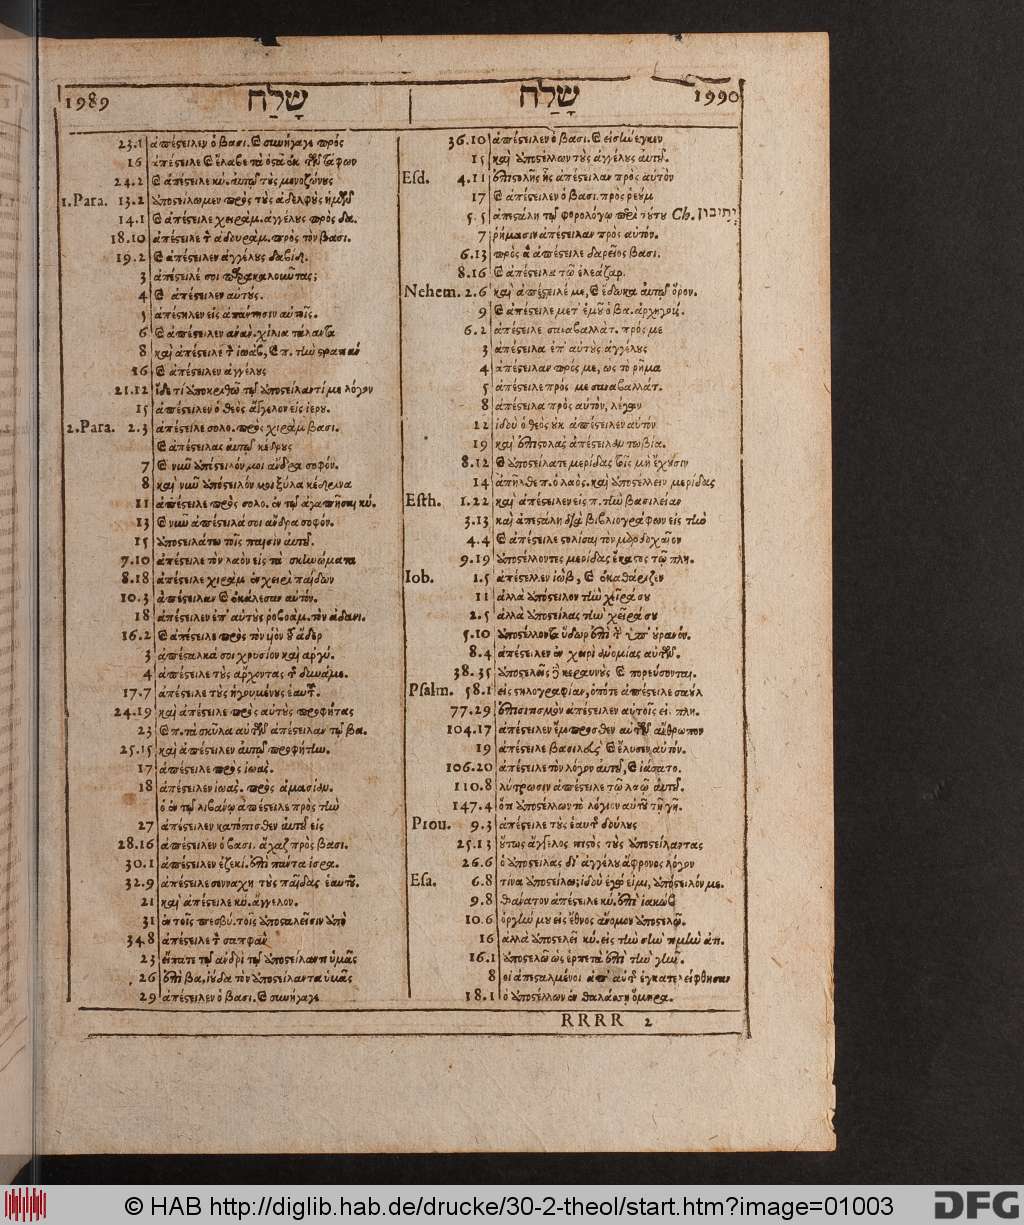 1989 שָׁלַח
23.1 ἀπέςειλεν ὁ βασι. & συνήγαγε πρός
16 ἀπέςειλε & ἔλαβε τὰ ὀςᾶ ἐκ τῶν τάφων
24.2 & ἀπέςειλε κύ. αὐτῷ τοὺς μονοζώνους
1.Para. 13.2 ἀποςείλωμεν πρὸς τοὺς ἀδελφοὺς ἡμῶν
14.1 & ἀπέςειλε χειράμ. ἀγγέλους πρὸς δα.
18.10 ἀπέςειλε τὸν ἀδουράμ. πρὸς τὸν βασι.
19.2 & ἀπέςειλεν ἀγγέλους δαβίδ.
3 ἀπέςειλέ σοι παρακαλοῦντας;
4 & ἀπέςειλεν αὐτούς.
5 ἀπέςειλεν εἰς ἀπάντησιν αὐτοῖς.
6 & ἀπέςειλεν ἀνάν. χίλια τάλαντα
8 καὶ ἀπέςειλε τὸν ἰωάβ, & π. τὴν ςρατιὰν
16 & ἀπέςειλεν ἀγγέλους
21.12 ἴδε τί ἀποκριθῶ τῷ ἀποςείλαντί με λόγον
15 ἀπέςειλεν ὁ θεὸς ἄγγελον εἰς ἱερου.
2.Para. 2.3 ἀπέςειλε σολο. πρὸς χιρὰμ βασι.
& ἀπέςειλας αὐτῷ κέδρους
7 & νῦν ἀπόςειλόν μοι ἄνδρα σοφόν.
8 καὶ νῦν ἀπόςειλόν μοι ξύλα κέδρινα
11 ἀπέςειλε πρὸς σολο. ἐν τῷ ἀγαπῆσαι κύ.
13 & νῦν ἀπέςειλά σοι ἄνδρα σοφόν.
15 ἀποςειλάτω τοῖς παισὶν αὐτοῦ.
7.10 ἀπέςειλε τὸν λαὸν εἰς τὰ σκηνώματα
8.18 ἀπέςειλε χιρὰμ ἐν χειρὶ παίδων
10.3 ἀπέςειλαν & ἐκάλεσαν αὐτόν.
18 ἀπέςειλεν ἐπ' αὐτοὺς ῥοβοάμ. τὸν ἀδωνι.
16.2 & ἀπέςειλε πρὸς τὸν υἱὸν τοῦ ἄδερ
3 ἀπέςαλκά σοι χρυσίον καὶ αργύ.
4 ἀπέςειλε τοὺς ἄρχοντας τ̃ δυνάμε.
17.7 ἀπέςειλε τοὺς ἡγουμένους ἑαυτοῦ.
24.19 καὶ ἀπέςειλε πρὸς αὐτοὺς προφήτας
23 & π. τὰ σκῦλα αὐτῶν ἀπέςειλαν τῷ βα.
25.15 καὶ ἀπέςειλεν αὐτῷ προφήτην.
17 ἀπέςειλε πρὸς ἰωας.
18 ἀπέςειλεν ἰωας. πρὸς ἀμασίαν.
ὁ ἐν τῷ λιβάνῳ ἀπέςειλε πρὸς τὴν
27 ἀπέςειλεν κατόπισθεν αὐτοῦ εἰς
28.16 ἀπέςειλεν ὁ βασι. ἄχαζ πρὸς βασι.
30.1 ἀπέςειλεν ἐζεκί. ἐπὶ πάντα ἰσρα.
32.9 ἀπέςειλε σενναχη τοὺς παῖδας ἑαυτοῦ.
21 καὶ ἀπέςειλε κύ. ἄγγελον.
31 ἐν τοῖς πρεσβύ. τοῖς ἀποςαλεῖσιν ἀπὸ
34.8 ἀπέςειλε τὸν σαπφὰν
23 εἴπατε τῷ ἀνδρὶ τῷ ἀποςείλαντι ὑμᾶς
26 ἐπὶ βα, ἰούδα τὸν ἀποςείλαντα ὑμᾶς
29 ἀπέςειλεν ὁ βασι. & συνήγαγε
שָׁלַח 1990
36.10 ἀπέςειλεν ὁ βασι. & εἰσήνεγκεν
15 καὶ ἀποςέλλων τοὺς ἀγγέλους αὐτοῦ.
Esd. 4.11 ἐπιςολῆς ἧς ἀπέςειλαν πρὸς αὐτὸν
17 & ἀπέςειλεν ὁ βασι. πρὸς ῥεούμ
5.5 ἀπεςάλη τῷ φορολόγῳ περὶ τούτου Ch. יְתִיבוּן
7 ῥήμασιν ἀπέςειλαν πρὸς αὐτόν.
6.13 πρὸς ὃ ἀπέςειλε δαρεῖος βασι.
8.16 & ἀπέςειλα τῷ ἐλεάζαρ.
Nehem. 2.6 καὶ ἀπέςειλέ με, & ἔδωκα αὐτῷ ὅρον.
9 & ἀπέςειλε μετ' ἐμοῦ ὁ βα. ἀρχηγούς.
6.2 ἀπέςειλε σαναβαλλάτ. πρός με
3 ἀπέςειλα ἐπ' αὐτοὺς ἀγγέλους
4 ἀπέςειλαν πρός με, ὡς τὸ ῥῆμα
5 ἀπέςειλε πρός με σαναβαλλάτ.
8 ἀπέςειλα πρὸς αὐτὸν, λέγων
12 ἰδοὺ ὁ θεὸς οὐκ ἀπέςειλεν αὐτὸν
19 καὶ ἐπιςολὰς ἀπέςειλεν τωβία.
8.12 & ἀποςείλατε μερίδας τοῖς μὴ ἔχουσιν
14 ἀπῆλθε π. ὁ λαὸς. καὶ ἀποςέλλειν μερίδας
Esth. 1.22 καὶ ἀπέςειλεν εἰς π. τὴν βασιλείαν
3.13 καὶ ἀπεςάλη διὰ βιβλιογράφων εἰς τὴν
4.4 & ἀπέςειλε ςολίσαι τὸν μαρδοχαῖον
9.19 ἀποςέλλοντες μερίδας ἕκαςος τῷ πλη.
Iob. 1.5 ἀπέςελλεν ἰὼβ, & ἐκαθάριζεν
11 ἀλλὰ ἀπόςειλον τὴν χεῖρά σου
2.5 ἀλλὰ ἀποςείλας τὴν χεῖρά σου
5.10 ἀποςέλλοντα ὕδωρ ἐπὶ τ̃ ὑπ' οὐρανόν.
8.4 ἀπέςειλεν ἐν χειρὶ ἀνομίας αὐτῶν.
38.35 ἀποςελεῖς ἢ κεραυνοὺς & πορεύσονται.
Psalm. 58.1 εἰς ςηλογραφίαν, ὁπότε ἀπέςειλε σαοὺλ
77.29 ἐπισιτισμὸν ἀπέςειλεν αὐτοῖς εἰ. πλη.
104.17 ἀπέςειλεν ἔμπροσθεν αὐτῶν ἄνθρωπον
19 ἀπέςειλε βασιλεὺς & ἔλυσεν αὐτόν.
106.20 ἀπέςειλε τὸν λόγον αὐτοῦ, & ἰάσατο.
110.8 λύτρωσιν ἀπέςειλε τῷ λαῷ αὐτοῦ.
147.4 ὁ ἀποςέλλων τὸ λόγιον αὐτοῦ τῇ γῇ.
Prou. 9.3 ἀπέςειλε τοὺς ἑαυτ̃ δούλους
25.13 οὕτως ἄγγελος πιςὸς τοὺς ἀποςείλαντας
26.6 ὁ ἀποςείλας δι' ἀγγέλου ἄφρονος λόγον
Esa. 6.8 τίνα ἀποςείλω; ἰδοὺ ἐγώ εἰμι, ἀπόςειλόν με.
9.8 θάνατον ἀπέςειλε κύ. ἐπὶ ἰακὼβ.
10.6 ὀργήν μου εἰς ἔθνος ἄνομον ἀποςελῶ.
16 ἀλλὰ ἀποςελεῖ κύ. εἰς τὴν σὴν τιμὴν ἀτι.
16.1 ἀποςελῶ ὡς ἑρπετὰ ἐπὶ τὴν γῆν.
8 οἱ ἀπεςαλμένοι ἀπ' αὐτ̃ ἐγκατελείφθησαν
18.1 ὁ ἀποςέλλων ἐν θαλάσσῃ ὅμηρα.
RRRR 2
© HAB http://diglib.hab.de/drucke/30-2-theol/start.htm?image=01003
DFG